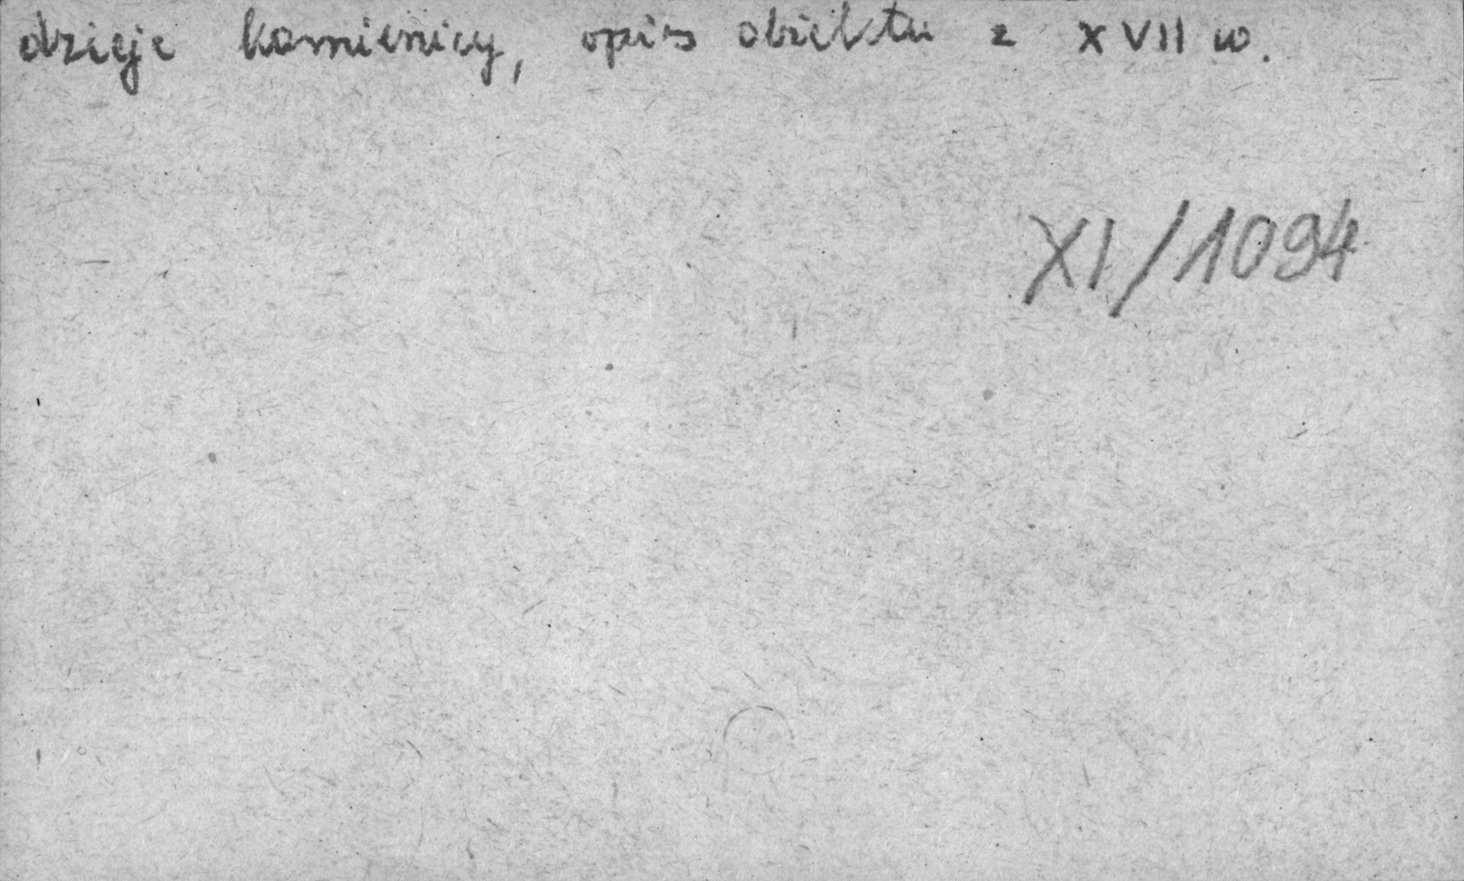 dzieje kamienicy, opis obiektu z XVII w.
XI/1094